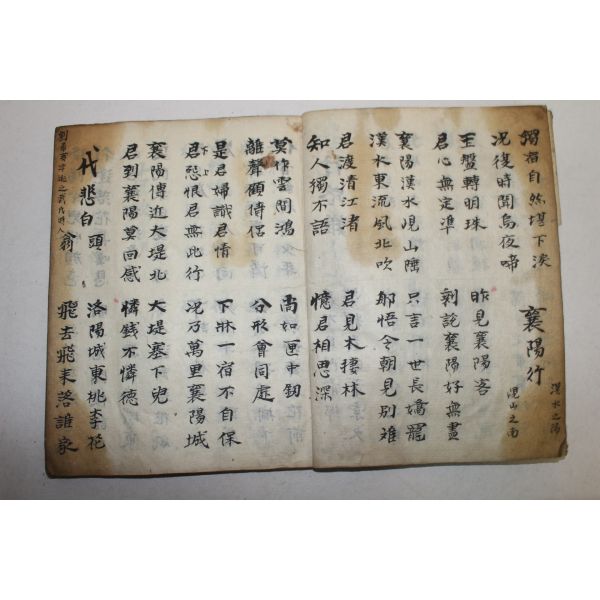 獨宿自然堪下淚
况復時聞烏夜啼
襄陽行
漢水之陽
峴山之南
玉盤轉明珠
君心無定準
昨見襄陽客
剩說襄陽好無盡
襄陽漢水峴山陲
漢水東流風北吹
只言一世長嬌寵
那悟今朝見別難
君渡清江渚
知人獨不語
君見木棲林
憶君相思深
莫作雲間鴻
離聲顧儔侶
尚如匣中釰
分形會同處
是君婦識君情
君怨恨君為此行
下牀一宿不自保
况乃萬里襄陽城
襄陽傳近大堤北
君到襄陽莫回惑
大堤塞下兒
憐錢不憐德
代悲白頭翁
劉希夷字延之武后時人
洛陽城東桃李花
飛去飛来落誰家